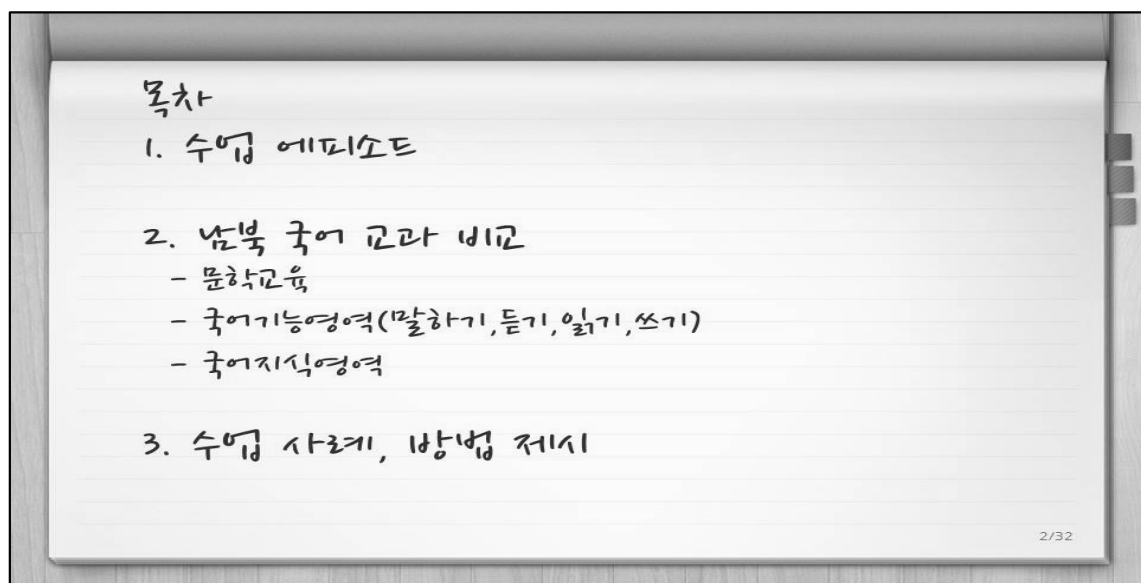 목차
1. 수업 에피소드
2. 남북 국어 교과 비교
- 문학교육
- 국어기능영역(말하기,듣기,읽기,쓰기)
- 국어지식영역
3. 수업 사례, 방법 제시
2/32